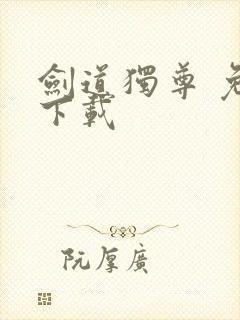 劍道獨尊 免
下載
阮厚廣